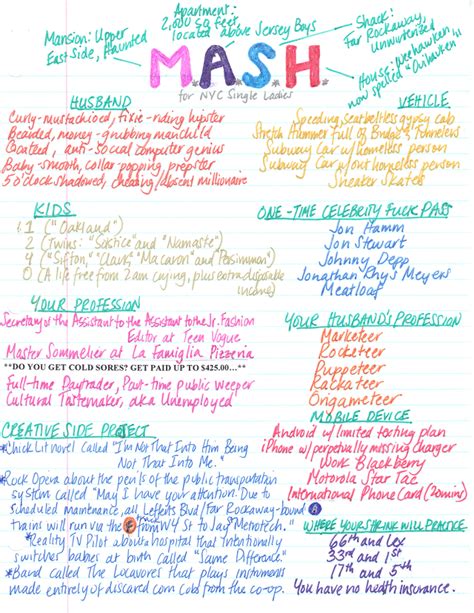 Apartment:
2,000 sq feet
located above Jersey Boys
Mansion: Upper
East Side, Haunted
Shack:
Far Rockaway,
Unwinterized
House: Weehawken,
now spelled "Oilhuvken"
M.A.S.H.
for NYC Single Ladies
HUSBAND
Curly-mustachioed, fixie-riding hipster
Bearded, money-grubbing manchild
Caoated, anti-social computer genius
Baby-smooth, collar popping, prepster
5 o'clock shadowed, cheating/absent millionaire
VEHICLE
Speeding, seatbeltless gypsy cab
Stretch Hummer full of Bridge & Tunnelers
Subway Car w/homeless person
Subway Car w/out homeless person
Sneaker Skates
KIDS
1 ("Oakland")
2 (Twins: "Solstice" and "Namaste")
4 ("Sifton," "Clavis," "Macaron" and "Persimmon")
0 (A life free from 2am crying, plus extra disposable
income)
ONE-TIME CELEBRITY FUCK PASS
Jon Hamm
Jon Stewart
Johnny Depp
Jonathan Rhys Meyers
Meatloaf
YOUR PROFESSION
Secretary of the Assistant to the Assistant to the Jr. Fashion
Editor at Teen Vogue
Master Sommelier at La Famiglia Pizzeria
**DO YOU GET COLD SORES? GET PAID UP TO $425.00...**
Full-time Daytrader, Part-time public weeper
Cultural Tastemaker, aka Unemployed
YOUR HUSBAND'S PROFESSION
Marketeer
Rocketeer
Puppeteer
Racketeer
Origameteer
CREATIVE SIDE PROJECT
*Chick Lit novel called "I'm Not That Into Him Being
Not That Into Me."
*Rock Opera about the perils of the public transportation
system called "May I have your attention. Due to
scheduled maintenance, all Lefferts Blvd/Far Rockaway-bound A
trains will run via the F track from W4 St to Jay/Metrotech."
*Reality TV Pilot about a hospital that intentionally
switches babies at birth called "Same Difference."
*Band called The Locavores that plays instruments
made entirely of discarded corn cobs from the co-op.
MOBILE DEVICE
Android w/limited texting plan
iPhone w/perpetually missing charger
Work Blackberry
Motorola Star Tac
International Phone Card (20mins)
WHERE YOUR SHRINK WILL PRACTICE
66th and Lex
33rd and 1st
17th and 5th
You have no health insurance.